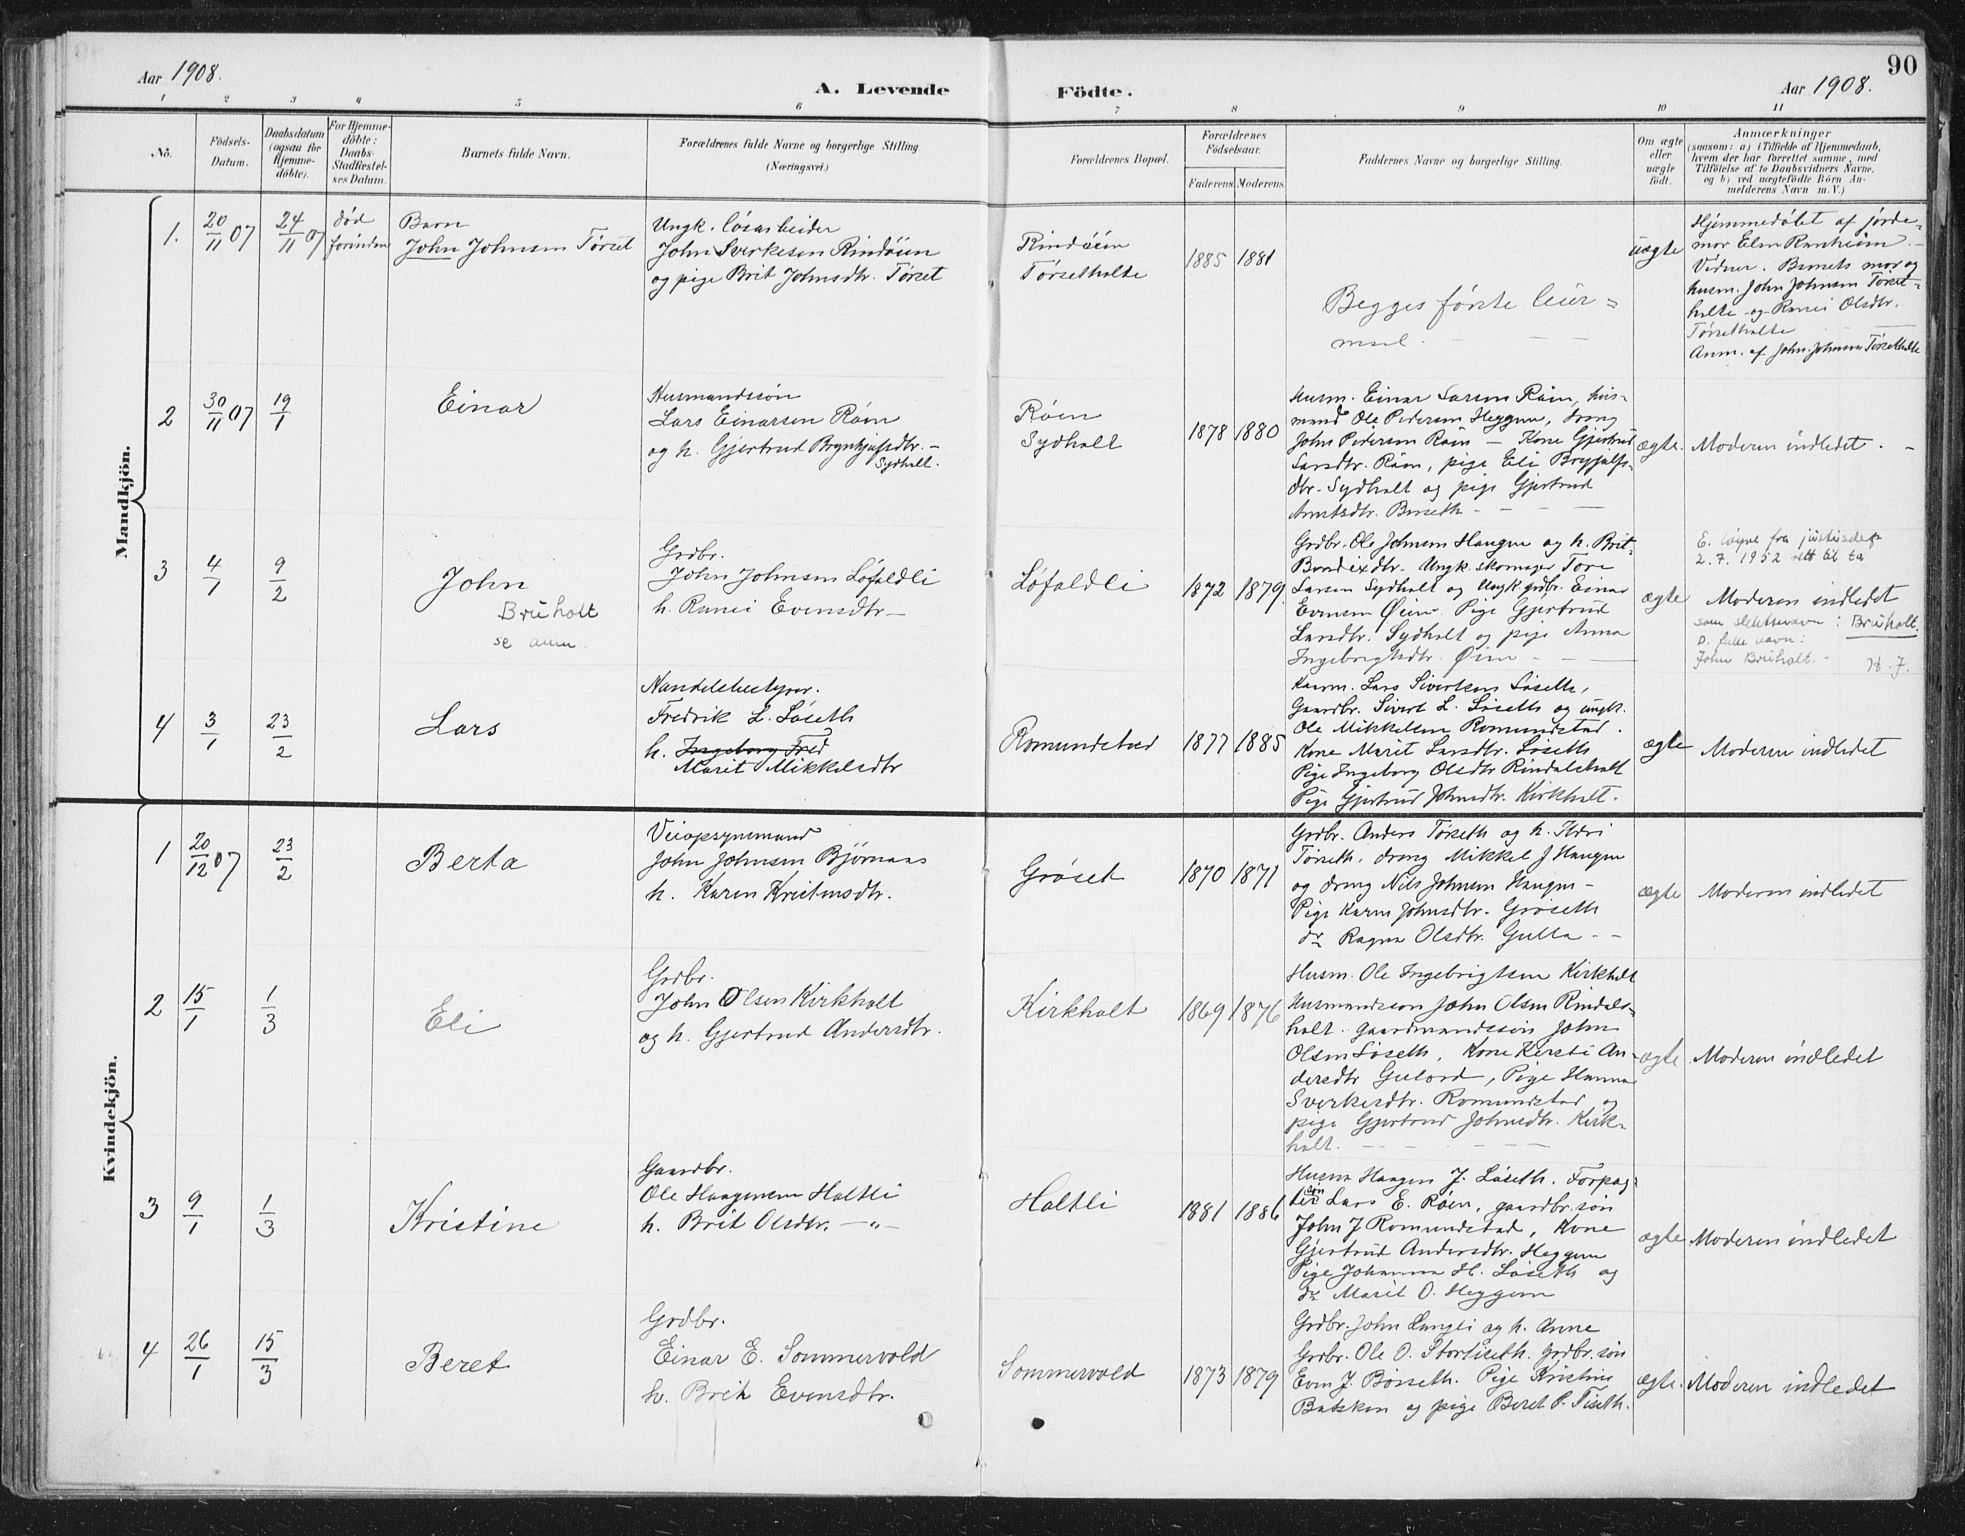 Aar 1908.
A. Levende Födte.
Aar 1908.
90
1 2 3 4 5 6 7 8 9 10 11
No.
Födsels-Datum.
Daabsdatum (ogsaa for Hjemme-döbte).
For Hjemme-döbte: Daabs-Stadfæstel-ses Datum.
Barnets fulde Navn.
Forældrenes fulde Navne og borgerlige Stilling (Næringsvei.)
Forældrenes Bopæl.
Forældrenes Födselsaar.
Faderens Moderens
Faddernes Navne og borgerlige Stilling.
Om ægte eller uægte födt.
Anmærkninger
(saasom: a) i Tilfælde af Hjemmedaab,
hvem der har forrettet samme, med
Tilföielse af to Daabsvidners Navne,
og b) ved uægtefödte Börn An-
melderens Navn m. V.)
Mandkjön.
1. 20/11 07 24/11 07
død
forinden
Barn
John Johnsen Tørset
Ungk. løsarbeider
John Sverkesen Rindøien
og pige Brit Johnsdtr. Tørset
Rindøien
Tørsetholte
1885 1881
Begges første leier=
maal.
uægte
Hjemmedøbt af jorde-
mor Elen Ranheim.
Vidner. Barnets mor og
husm. John Johnsen Tørset-
holte og Ranei Olsdtr.
Tørsetholte
Anm. af John Johnsen Tørsetholte
2 30/11 07 19/1
Einar
Husmandssøn
Lars Einarsen Røen
og h. Gjertrud Brynhjulfsdtr. -
Sydhalt.
Røen
Sydhalt
1878 1880
Husm. Einar Larsen Røen, hus-
mand Ole Pedersen Heggem, dreng
John Pedersen Røen - Kone Gjertrud
Larsdtr. Røen, pige Eli Brynjulfs-
dtr. Sydhalt og pige Gjertrud
Arntsdtr. Børseth
ægte.
Moderen indledet. -
3 4/1 9/2
John
Bruholt
se anm.
Grdbr.
John Johnsen Løfaldli
h. Ranei Evensdtr -
Løfaldli
1872 1879.
Grdbr. Ole Johnsen Haugen og h. Brit
Bendixdtr. Ungk. skomager Tore
Larsen Sydhalt og Ungk. grdbr. Einar
Evensen Øien. Pige Gjertrud
Larsdtr. Sydhalt og pige Anna
Ingebrigtsdtr. Øien
ægte
E. løyve fra justisdep
2.7.1952 rett til ta
Moderen indledet
som slektsnavn: Bruholt.
D. fulle navn:
John Bruholt. - H. J.
4 3/1 23/2
Lars
Handelsbestyrer.
Fredrik L. Løseth
h. Ingeborg Fred
Marit Mikkelsdtr
Romundstad
1877 1885
Kaarm. Lars Sivertsen Løseth,
Gaardbr. Sivert L. Løseth og ungk.
Ole Mikkelsen Romundstad.
Kone Marit Larsdtr. Løseth
Pige Ingeborg Olsdtr Rindalshalt
Pige Gjertrud Johnsdtr. Kirkhalt.
ægte
Moderen indledet
Kvindekjön.
1 20/12 07 23/2
Berta
Veiopsynsmand
John Johnsen Bjørnaas
h. Karen Kristensdtr.
Grøset
1870 1871
Grdbr. Anders Tørseth og h. Ildri
Tørseth, dreng Mikkel J Haugen
og dreng Nils Johnsen Haugen -
Pige Karen Johnsdtr. Grøseth
do Ragna Olsdtr. Gulla. -
ægte
Moderen indledet
2 15/1 1/3
Eli
Grdbr.
John Olsen Kirkhalt
og h. Gjertrud Andersdtr.
Kirkhalt
1869 1876
Husm. Ole Ingebrigtsen Kirkhalt
Husmandssøn John Olsen Rindals-
halt. gaardmandssøn John
Olsen Løseth, Kone Kersti An-
dersdtr Gulord, Pige Hanna
Sverkesdtr. Romundstad og
pige Gjertrud Johnsdtr. Kirk-
halt.
ægte
Moderen indledet
3 9/1 1/3
Kristine
Gaardbr.
Ole Haagensen Haltli
h. Brit Olsdtr. -"-
Haltli
1881 1886
Husm Haagen J. Løseth. Forpag-
ter søn Lars E. Røen, gaardbr. søn
John J Romundstad, Kone
Gjertrud Andersdtr. Heggem
Pige Johanna H. Løseth og
do Marit O. Heggem
ægte
Moderen indledet
4 26/1 15/3
Beret
Grdbr.
Einar E. Sommervold
h. Brit Evensdtr.
Sommervold
1873 1879
Grdbr. John Langli og h. Anne
Grdbr. Ole O. Storliseth. grdbr. søn
Even J. Børseth. Pige Kristine
Baksken og pige Beret P. Tiseth.
ægte.
Moderen indledet